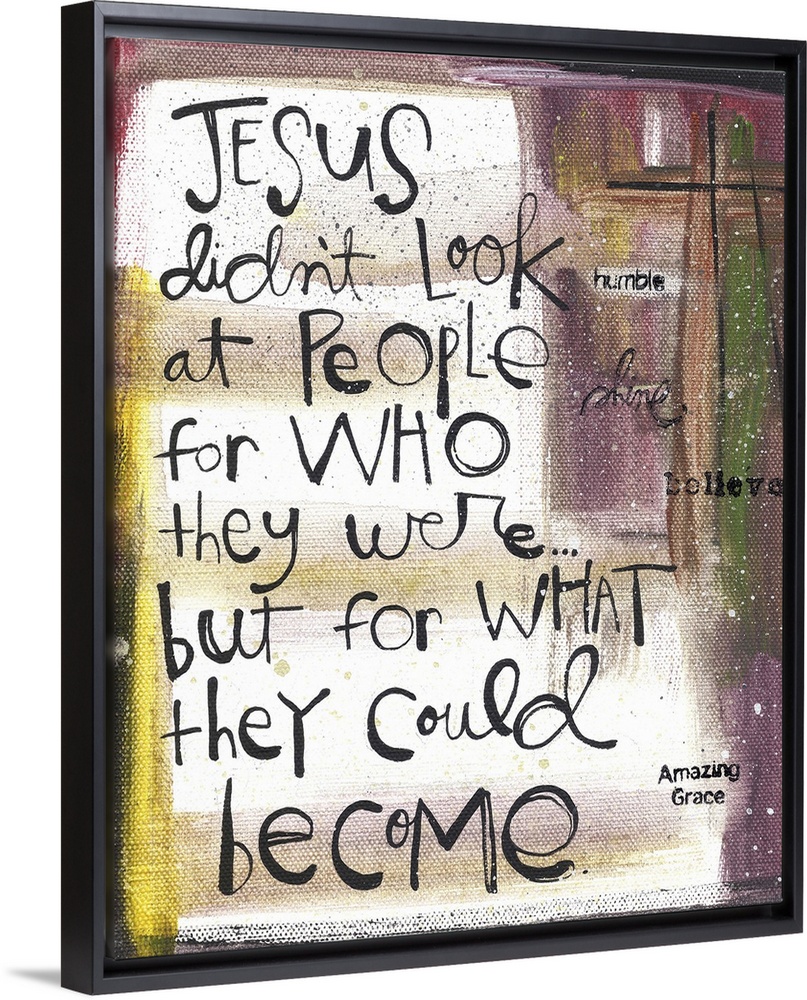 JESUS
didn't Look
at PeOPLE
for WHO
they were...
but for WHAT
they Could
become.
humble
shine
believe
Amazing
Grace